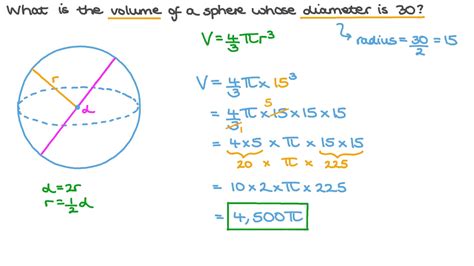 What is the volume of a sphere whose diameter is 30?
V = 4/3 πr³
radius = 30/2 = 15
r
d
d = 2r
r = 1/2 d
V = 4/3 π × 15³
= 4/3 π × 15 × 15 × 15
5
1
= 4 × 5 × π × 15 × 15
20 × π × 225
= 10 × 2 × π × 225
= 4,500π